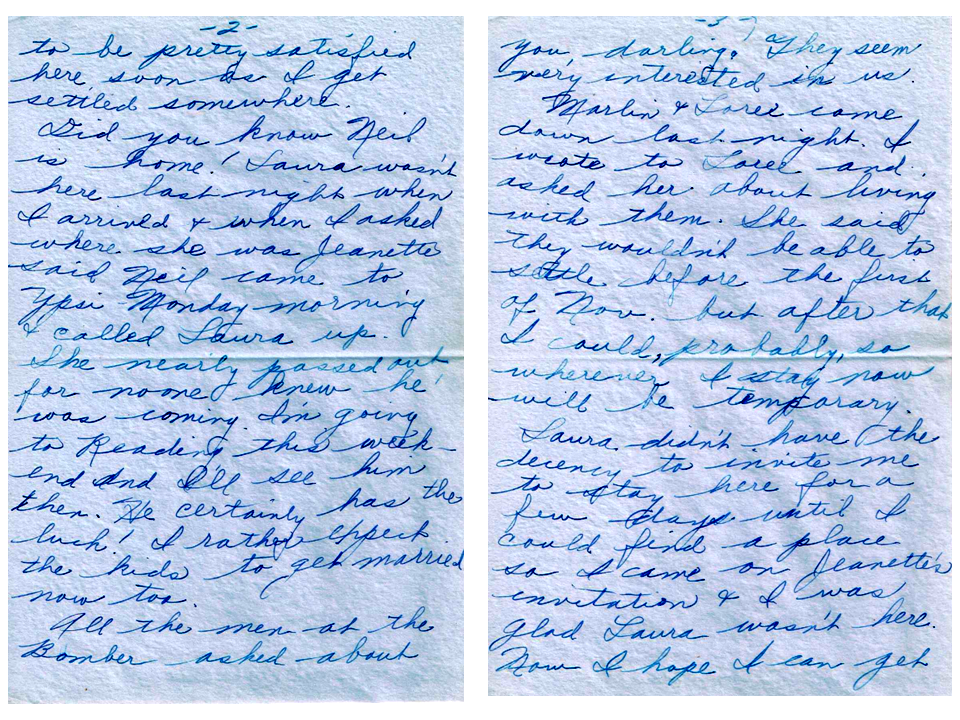 -2-
to be pretty satisfied
here soon as I get
settled somewhere.
Did you know Neil
is home! Laura wasn't
here last night when
I arrived & when I asked
where she was Jeanette
said Neil came to
Ypsi Monday morning
& called Laura up.
She nearly passed out
for no one knew he
was coming. I'm going
to Reading this week-
end and I'll see him
then. He certainly has the
luck! I rather expect
the kids to get married
now too.
All the men at the
Bomber asked about
-3-
you, darling. They seem
very interested in us.
Marlin & Loree came
down last night. I
wrote to Loree and
asked her about living
with them. She said
they wouldn't be able to
settle before the first
of Nov. but after that
I could, probably, so
wherever I stay now
will be temporary.
Laura didn't have the
decency to invite me
to stay here for a
few days until I
could find a place
so I came on Jeanette's
invitation & I was
glad Laura wasn't here.
Now I hope I can get